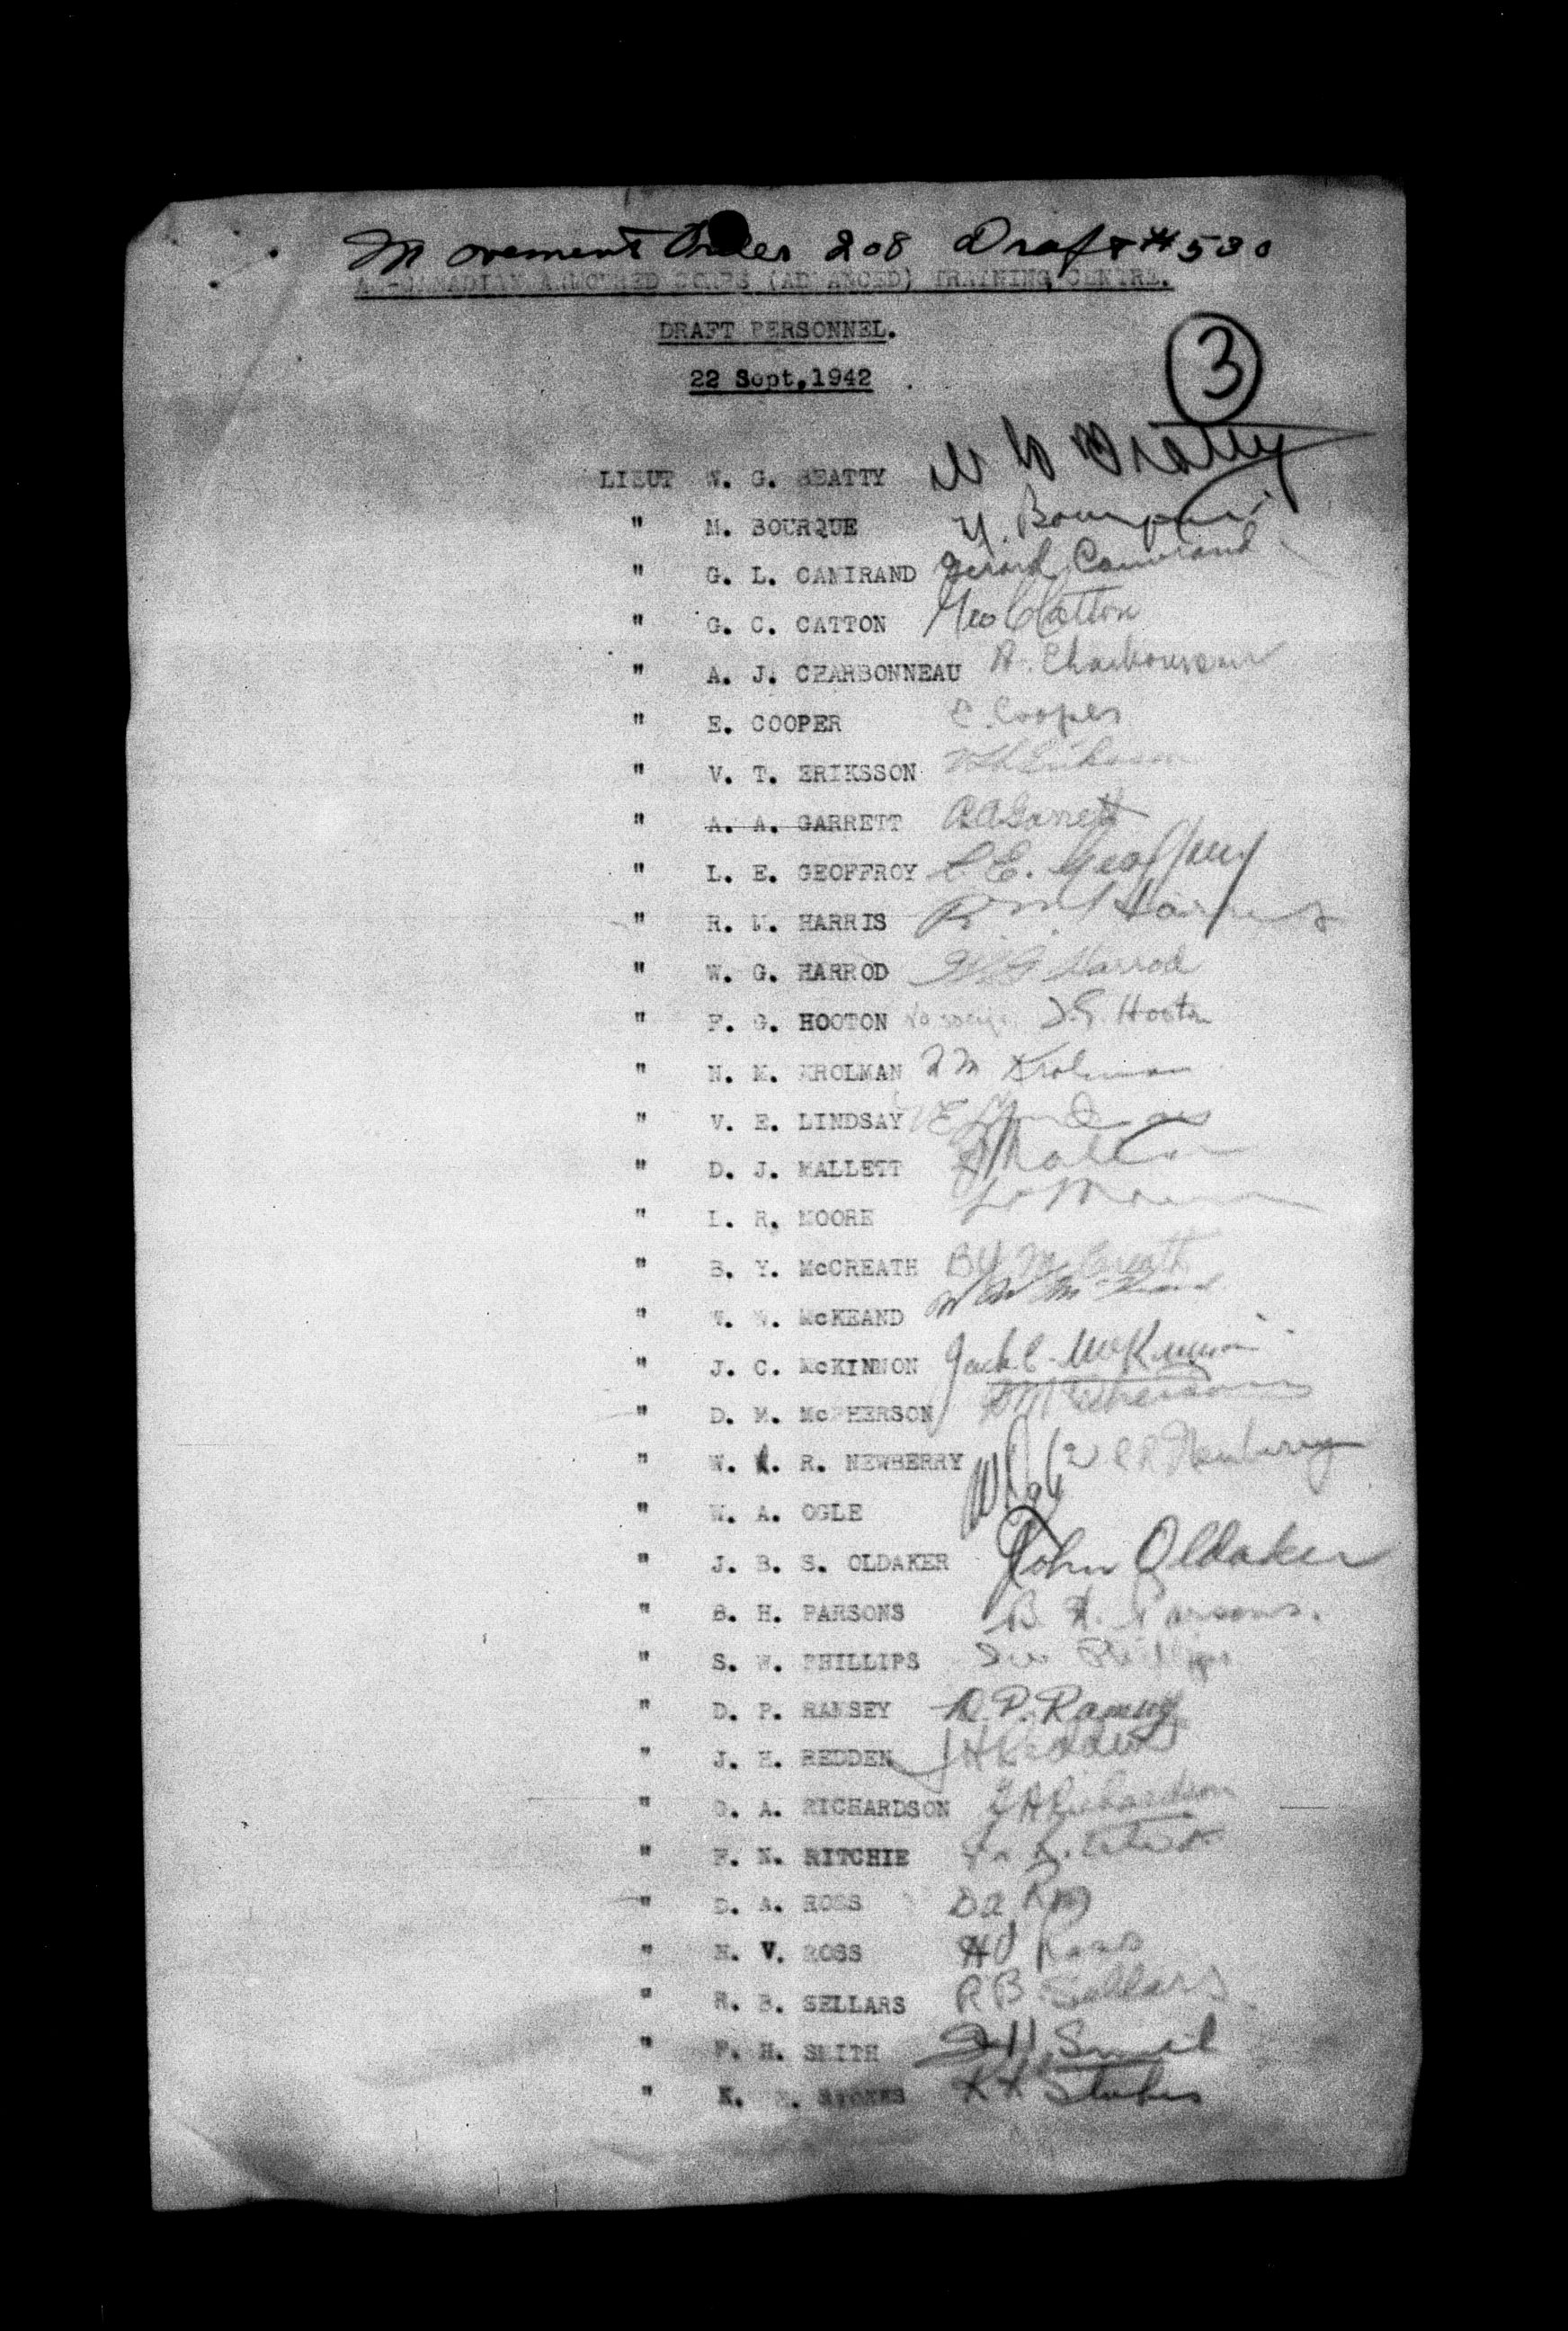 Movement Order 208 Draft #530
A-CANADIAN ARMOURED CORPS (ADVANCED) TRAINING CENTRE.
DRAFT PERSONNEL.
22 Sept,1942
3
LIEUT W. G. BEATTY W G Beatty
" M. BOURQUE M. Bourque
" G. L. CAMIRAND Gerard Camirand
" G. C. CATTON Geo C Catton
" A. J. CHARBONNEAU A. Charbonneau
" E. COOPER E. Cooper
" V. T. ERIKSSON
" A. A. GARRETT A A Garrett
" L. E. GEOFFROY L. E. Geoffroy
" R. M. HARRIS R M Harris
" W. G. HARROD W G Harrod
" F. G. HOOTON F.G. Hooton
" H. M. KROLMAN H M Krolman
" V. E. LINDSAY V E Lindsay
" D. J. MALLETT
" L. R. MOORE
" B. Y. McCREATH B Y McCreath
" W. W. McKEAND W W McKeand
" J. C. McKINNON Jack C. McKinnon
" D. M. McPHERSON D M McPherson
" W. R. NEWBERRY Newberry
" W. A. OGLE
" J. B. S. OLDAKER John Oldaker
" B. H. PARSONS B. H. Parsons.
" S. W. PHILLIPS S W Phillips
" D. P. RAMSEY D. P. Ramsey
" J. H. REDDEN J H Redden
" G. A. RICHARDSON G A Richardson
" F. N. RITCHIE
" D. A. ROSS D A Ross
" H. V. ROSS H V Ross
" R. B. SELLARS R B Sellars
" F. H. SMITH F H Smith
" K. H. STOKES K H Stokes